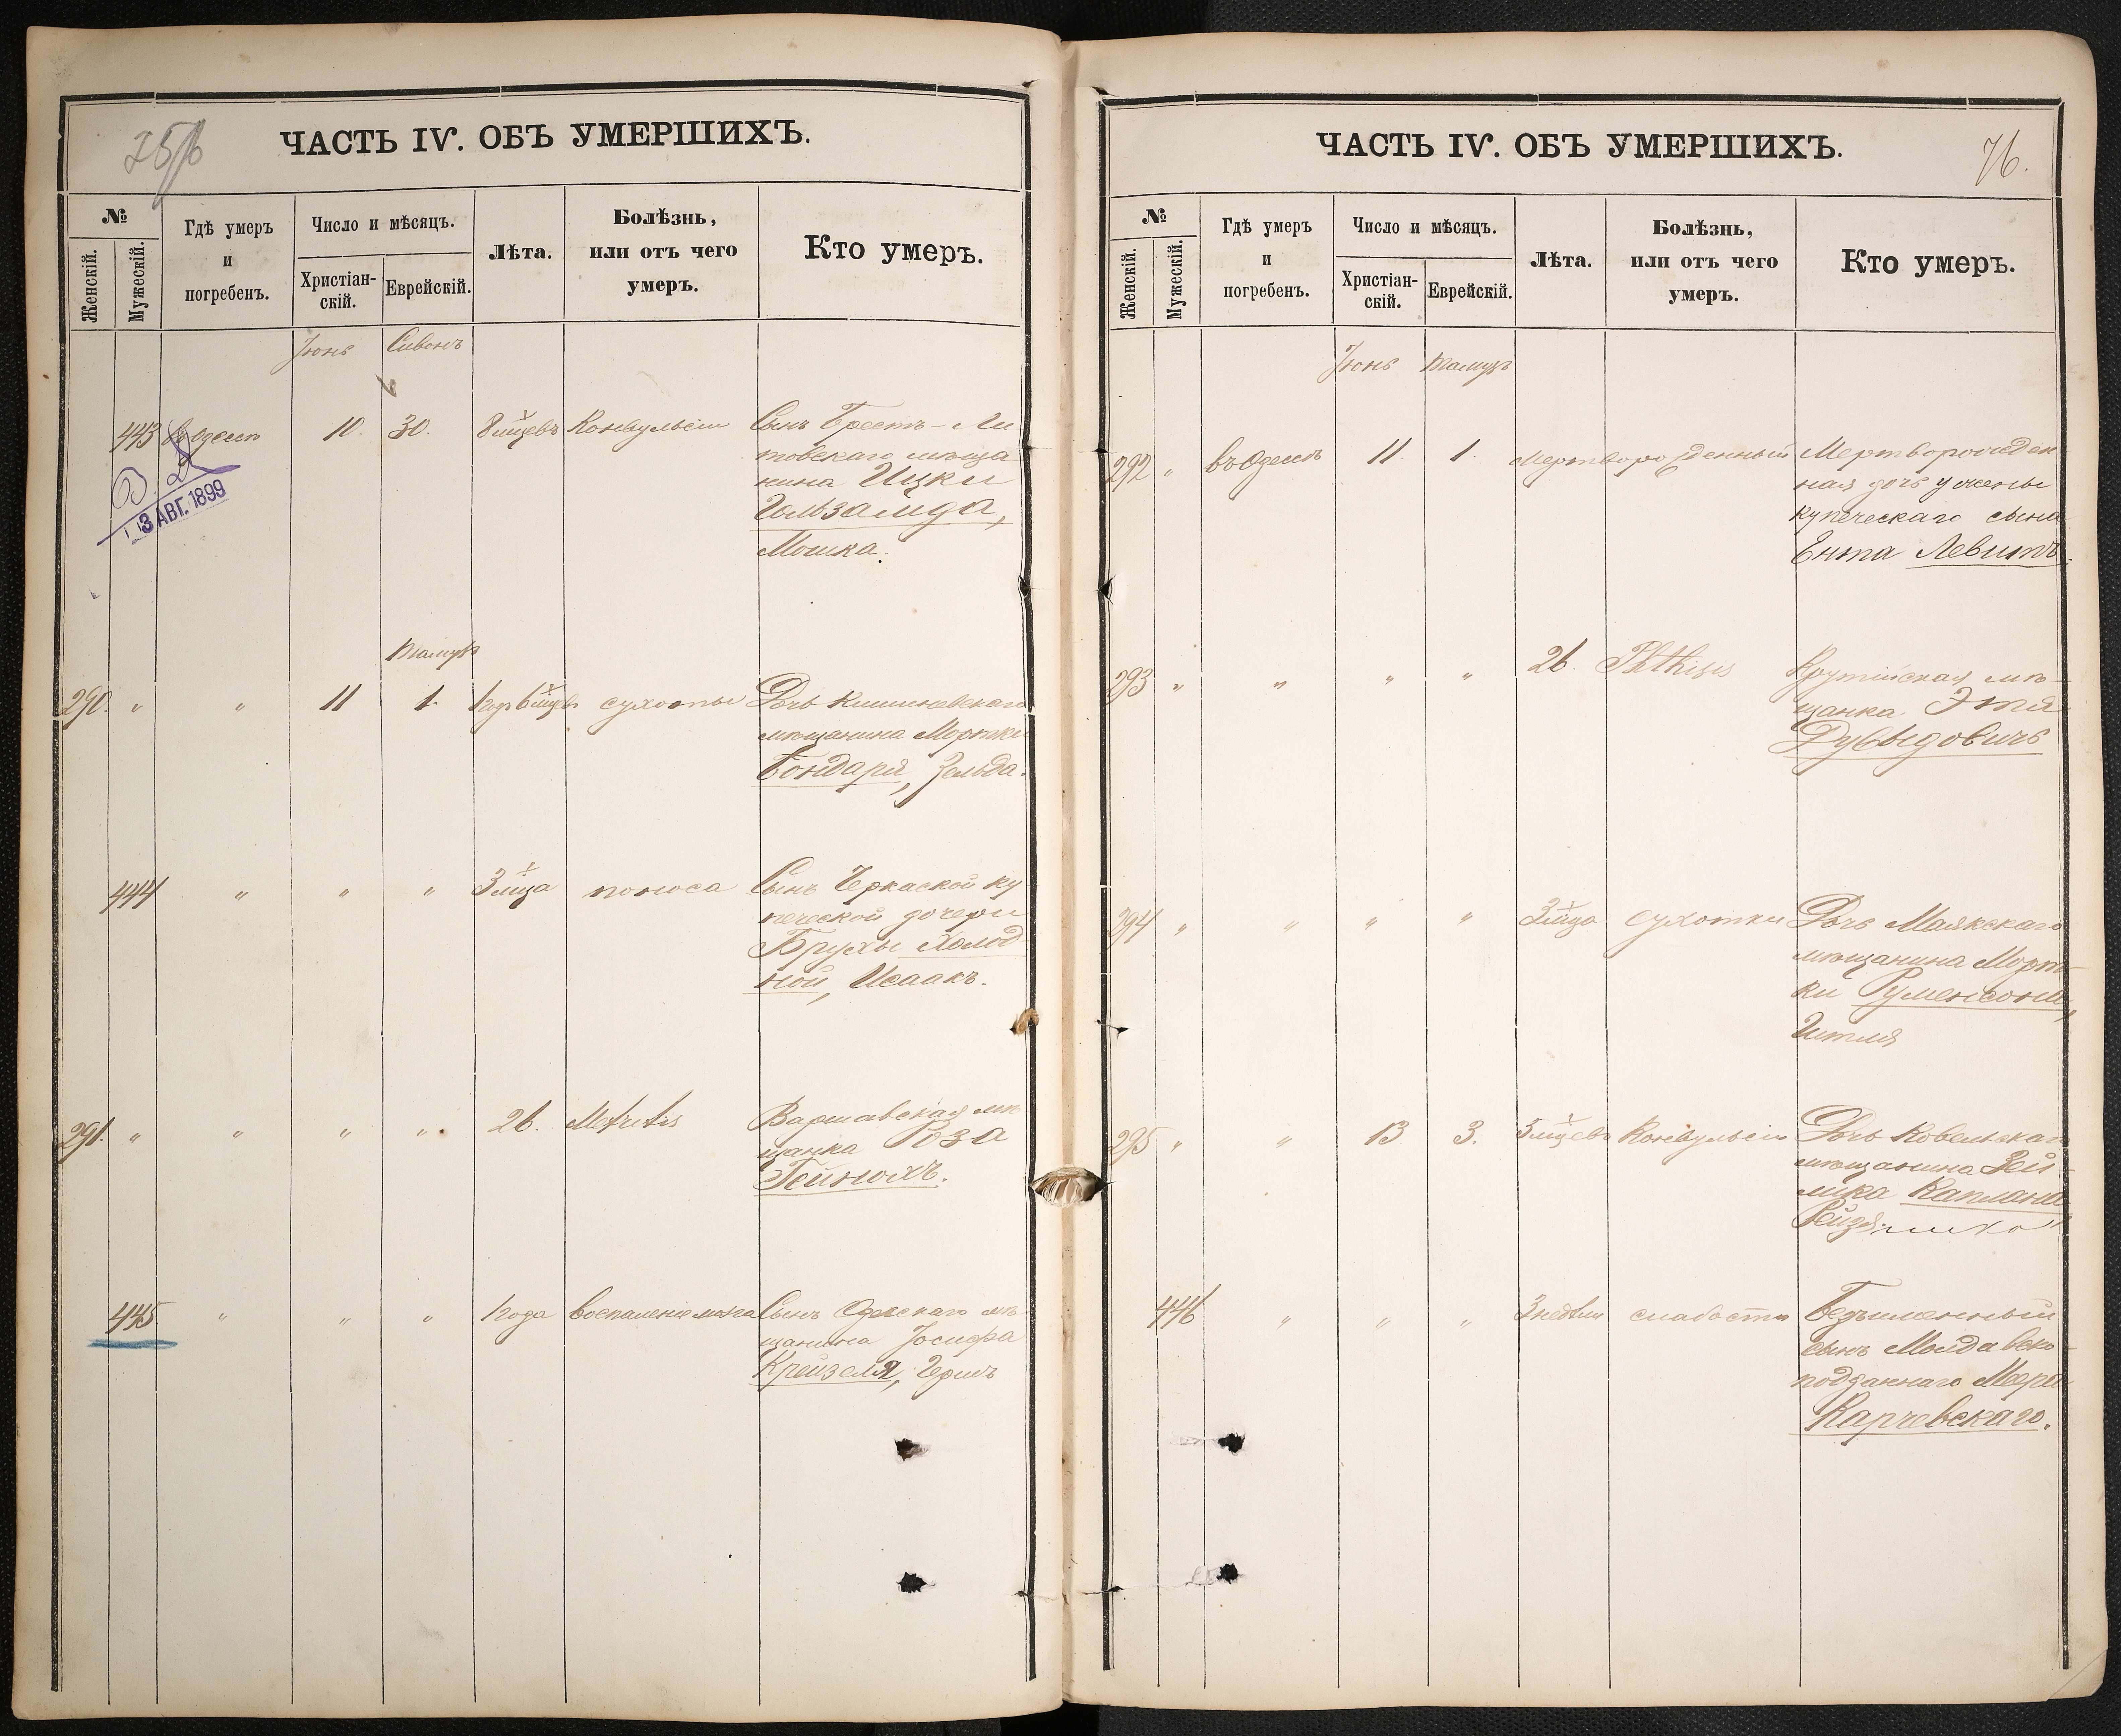 ЧАСТЬ IV. ОБЪ УМЕРШИХЪ.
№
Женскій.
Мужескій.
Гдѣ умеръ
и
погребенъ.
Число и мѣсяцъ.
Христіан-
скій.
Еврейскій.
Лѣта.
Болѣзнь,
или отъ чего
умеръ.
Кто умеръ.
Іюнь Сивонъ
443 въ Одессѣ 10. 30. 8 мцевъ Конвульсіи Сынъ Брестъ-Ли
товскаго мѣща
нина Ицки
Гользамда,
Мошка.
3 АВГ. 1899
Тамузъ
290. " " 11 1. 1 годъ 6 мцевъ сухоты Дочь Кишиневскаго
мѣщанина Мортки
Бондаря, Зельда.
444 " " " 3 мца поноса Сынъ Черкаской ку
печеской дочери
Брухи Холод
ной, Исаакъ.
291. " " " " 26. Metritis Варшавская мѣ
щанка Роза
Гейнохъ.
445 " " " 1 года воспаленіе мозга Сынъ Одесскаго мѣ
щанина Іосифа
Крейзеля, Гершъ
ЧАСТЬ IV. ОБЪ УМЕРШИХЪ.
76.
№
Женскій.
Мужескій.
Гдѣ умеръ
и
погребенъ.
Число и мѣсяцъ.
Христіан-
скій.
Еврейскій.
Лѣта.
Болѣзнь,
или отъ чего
умеръ.
Кто умеръ.
Іюнь Тамузъ
292 " въ Одессѣ 11. 1. Мертворожденный Мертворожден
ная дочь у жены
купеческаго сына
Ента Левитъ.
293 " " " " 26. Phthisis Крутійская мѣ-
щанка Этя
Дувыдовичъ
294 " " " " 3 мца сухотки Дочь Маякскаго
мѣщанина Морт-
ки Руменсона,
Гитля
295 " " 13 3. 3 мцевъ Конвульсіи Дочь Ковельскаго
мѣщанина Зей-
лика Каплана
Рейзя
446 " " " 3 недѣли слабости Безъименный
сынъ Молдавско-
подданнаго Меера
Карчевскаго.